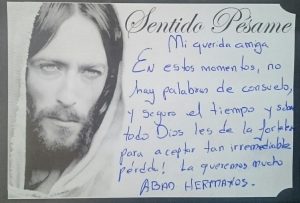 Sentido Pésame
Mi querida amiga
En estos momentos, no
hay palabras de consuelo,
y seguro el tiempo y sobre
todo Dios les de la fortaleza
para aceptar tan irremediable
pérdida! La queremos mucho
ABAD HERMANOS.